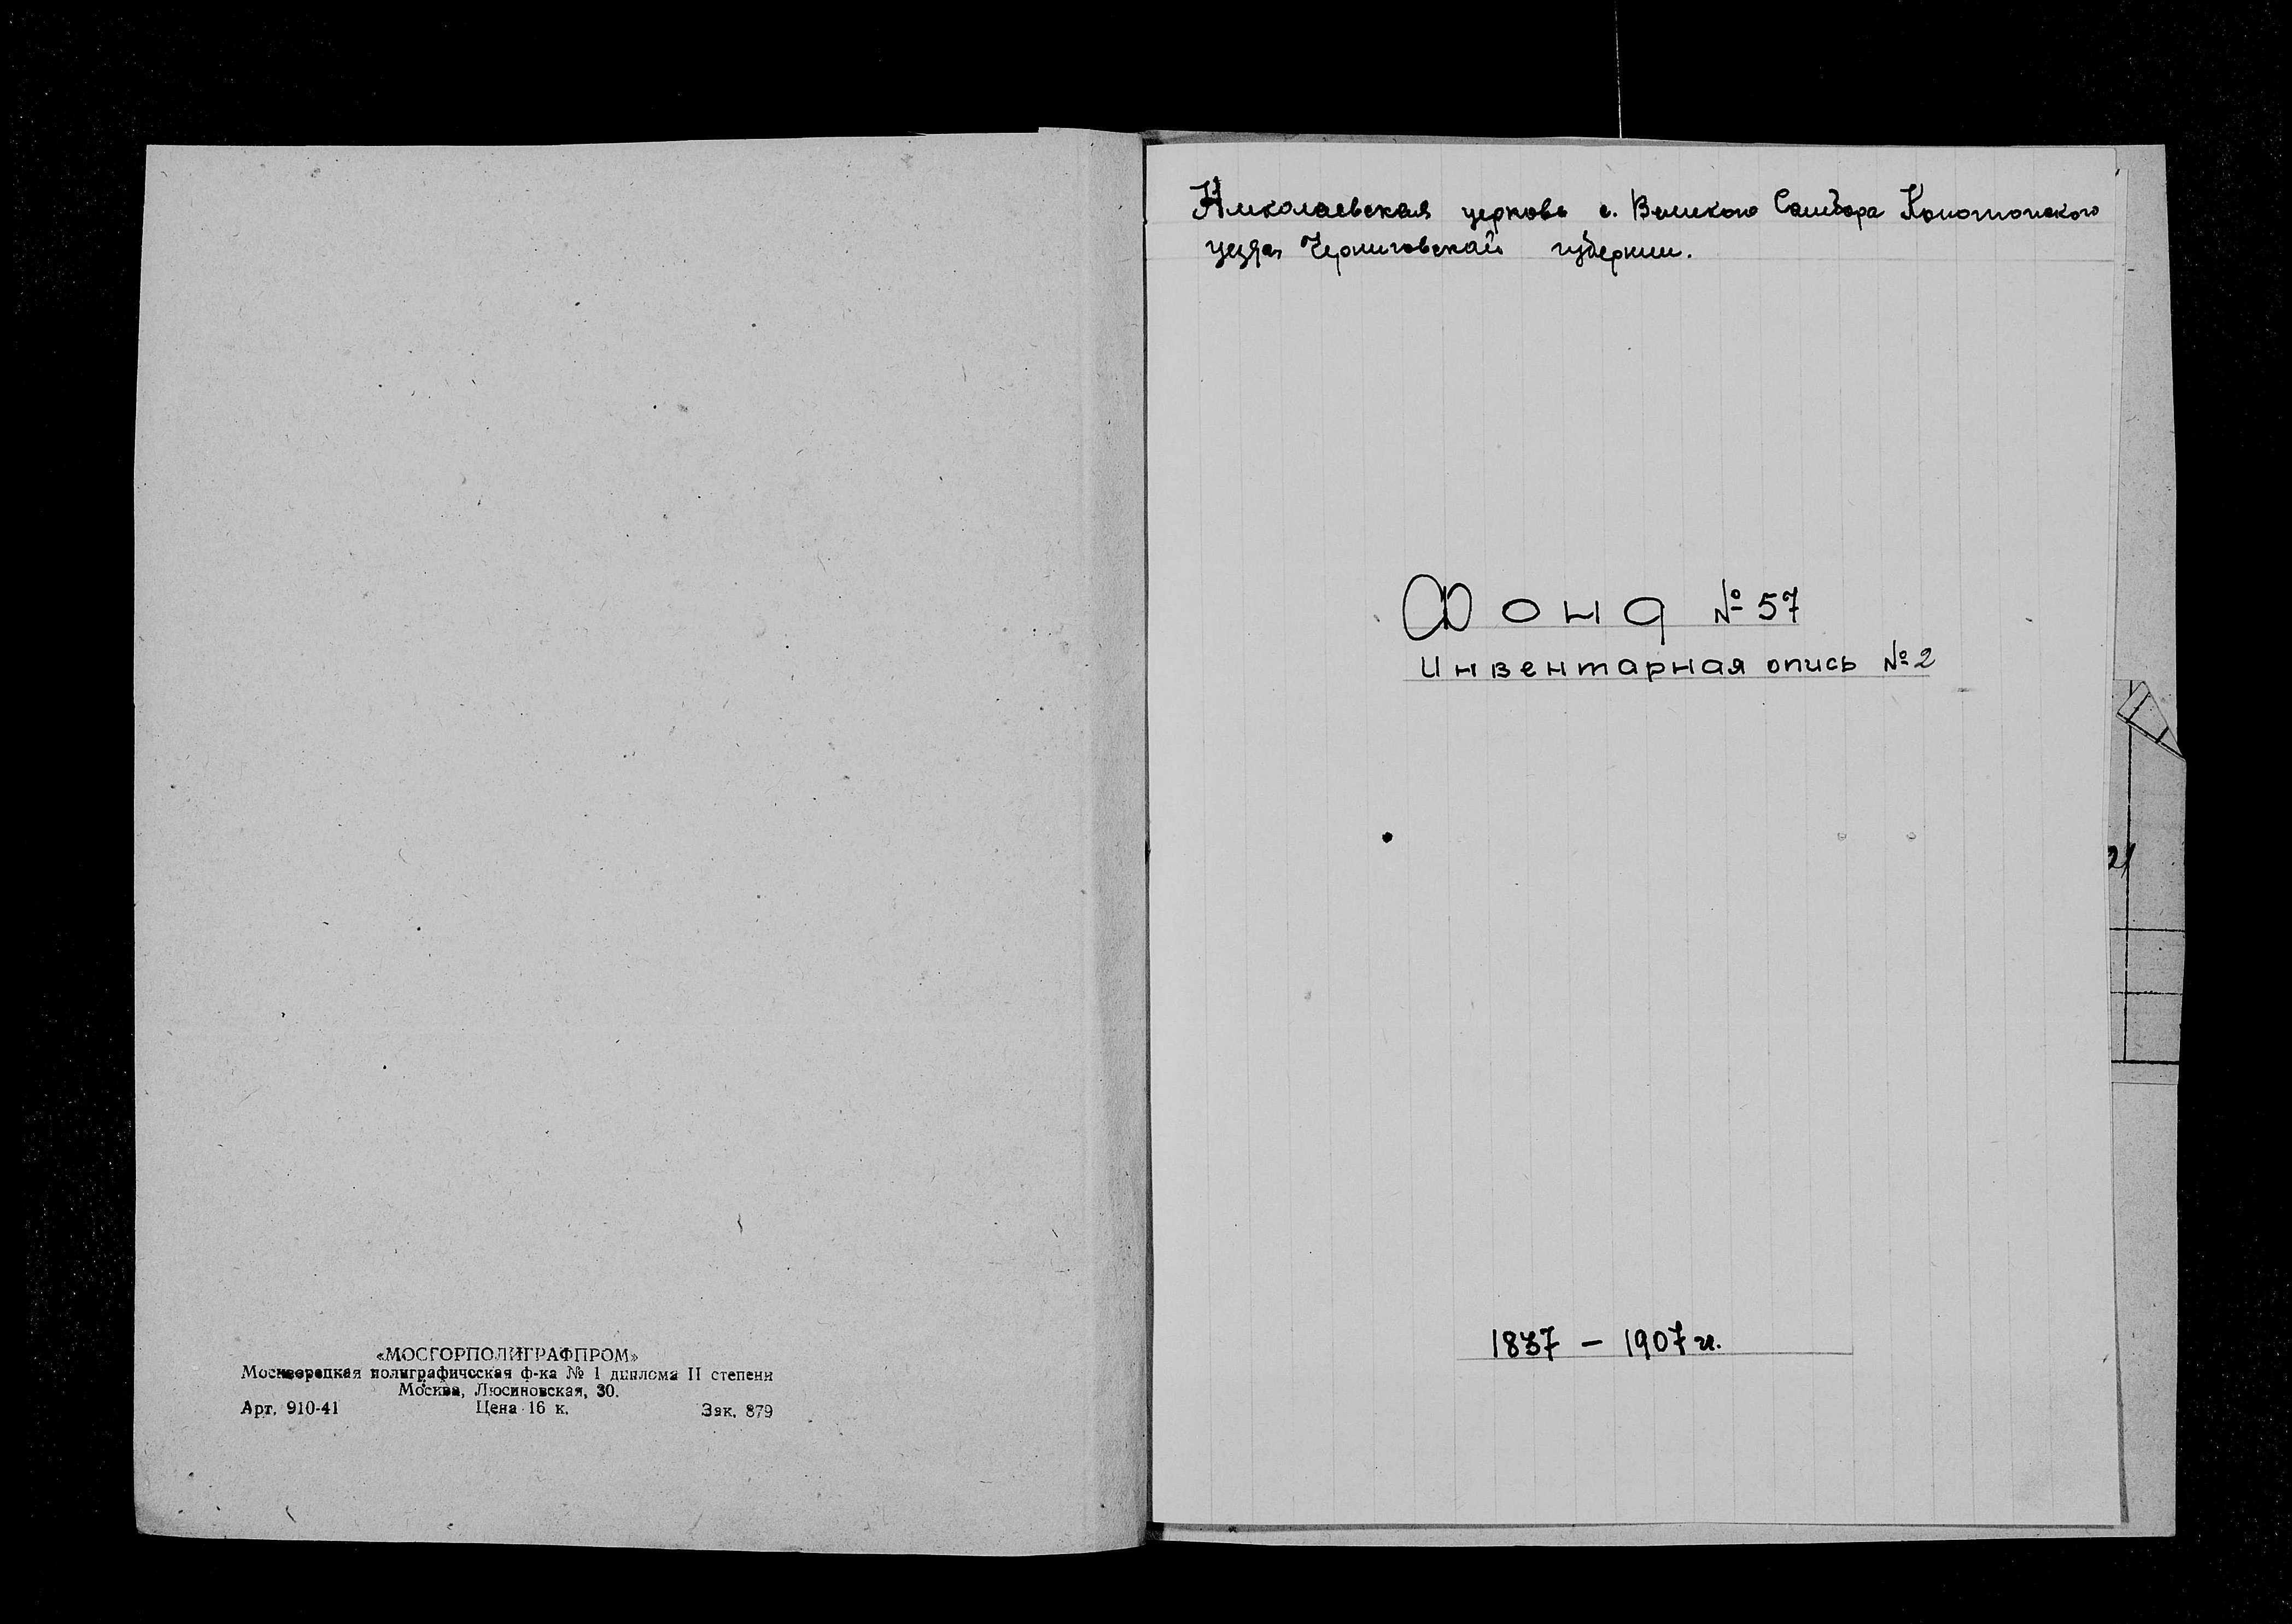 «МОСГОРПОЛИГРАФПРОМ»
Москворецкая полиграфическая ф-ка № 1 диплома II степени
Москва, Люсиновская, 30.
Арт. 910-41 Цена 16 к. Зак. 879
Николаевская церковь с. Великого Самбора Конотопского
уезда Черниговской губернии.
Фонд № 57
Инвентарная опись № 2
21
1837 – 1907 гг.